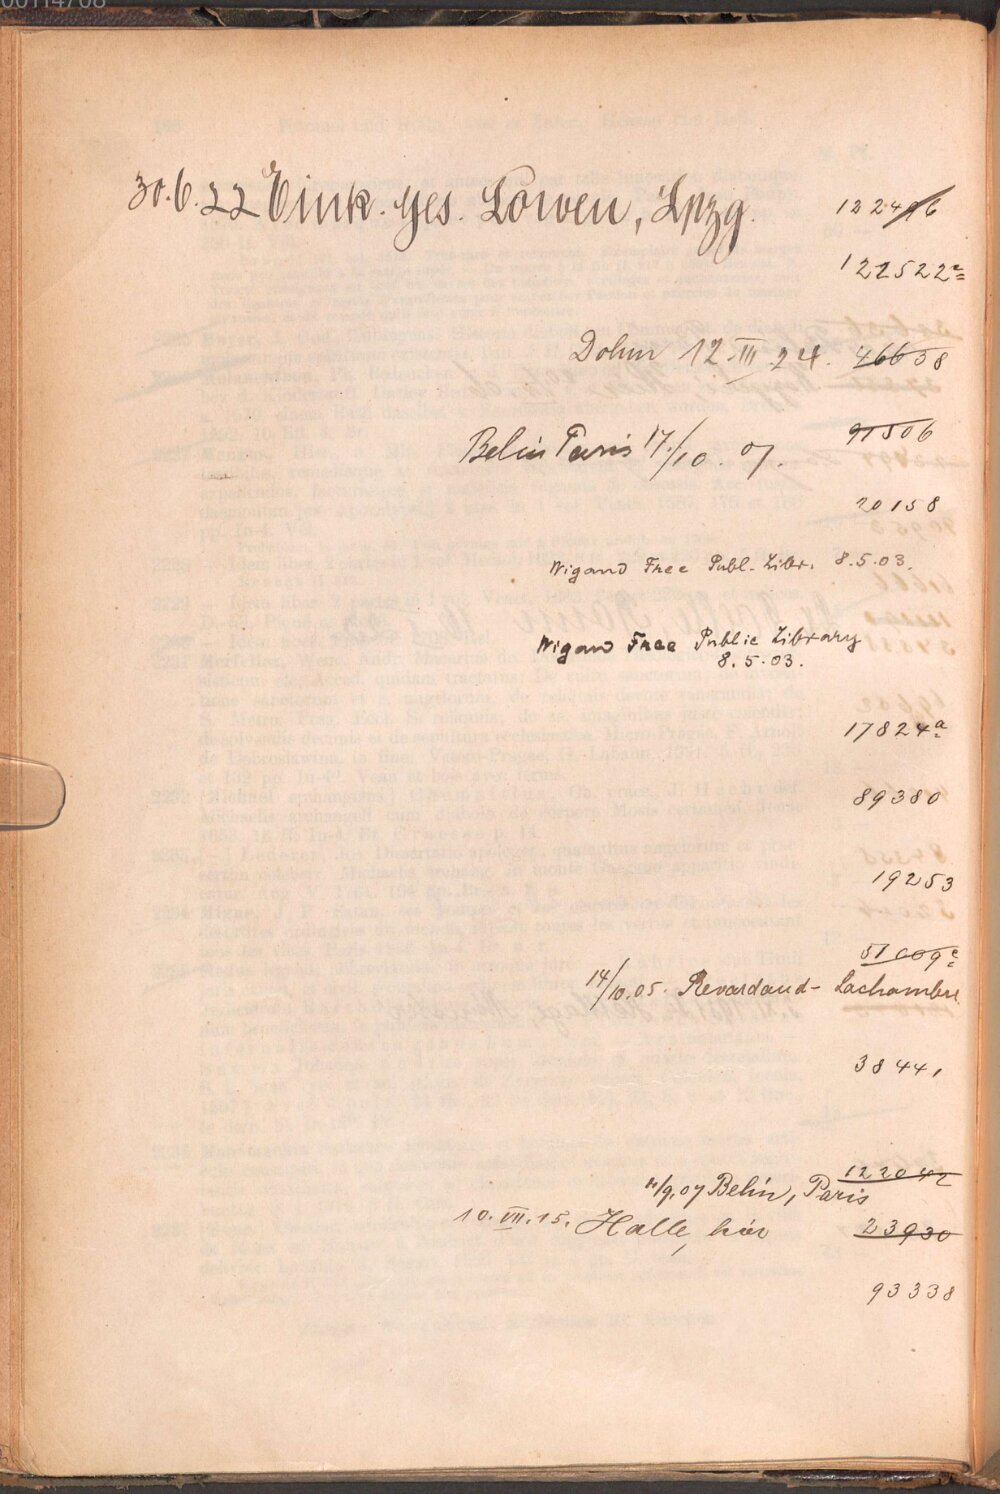 00114708
30.6.22 Eink. Ges. Löwen, Lpzg. 122496
122522
Dohrn 12.III 24. 46638
Belin Paris 17./10. 07. 91506
20158
Wigand Free Publ. Libr. 8.5.03.
Wigand Free Public Library
8.5.03.
17824a
89380
19253
51009c
14/10.05. Revardaud- Lachambre
38441
122042
/9.07 Belin, Paris
10.VII.15. Halle, hier 23930
93338